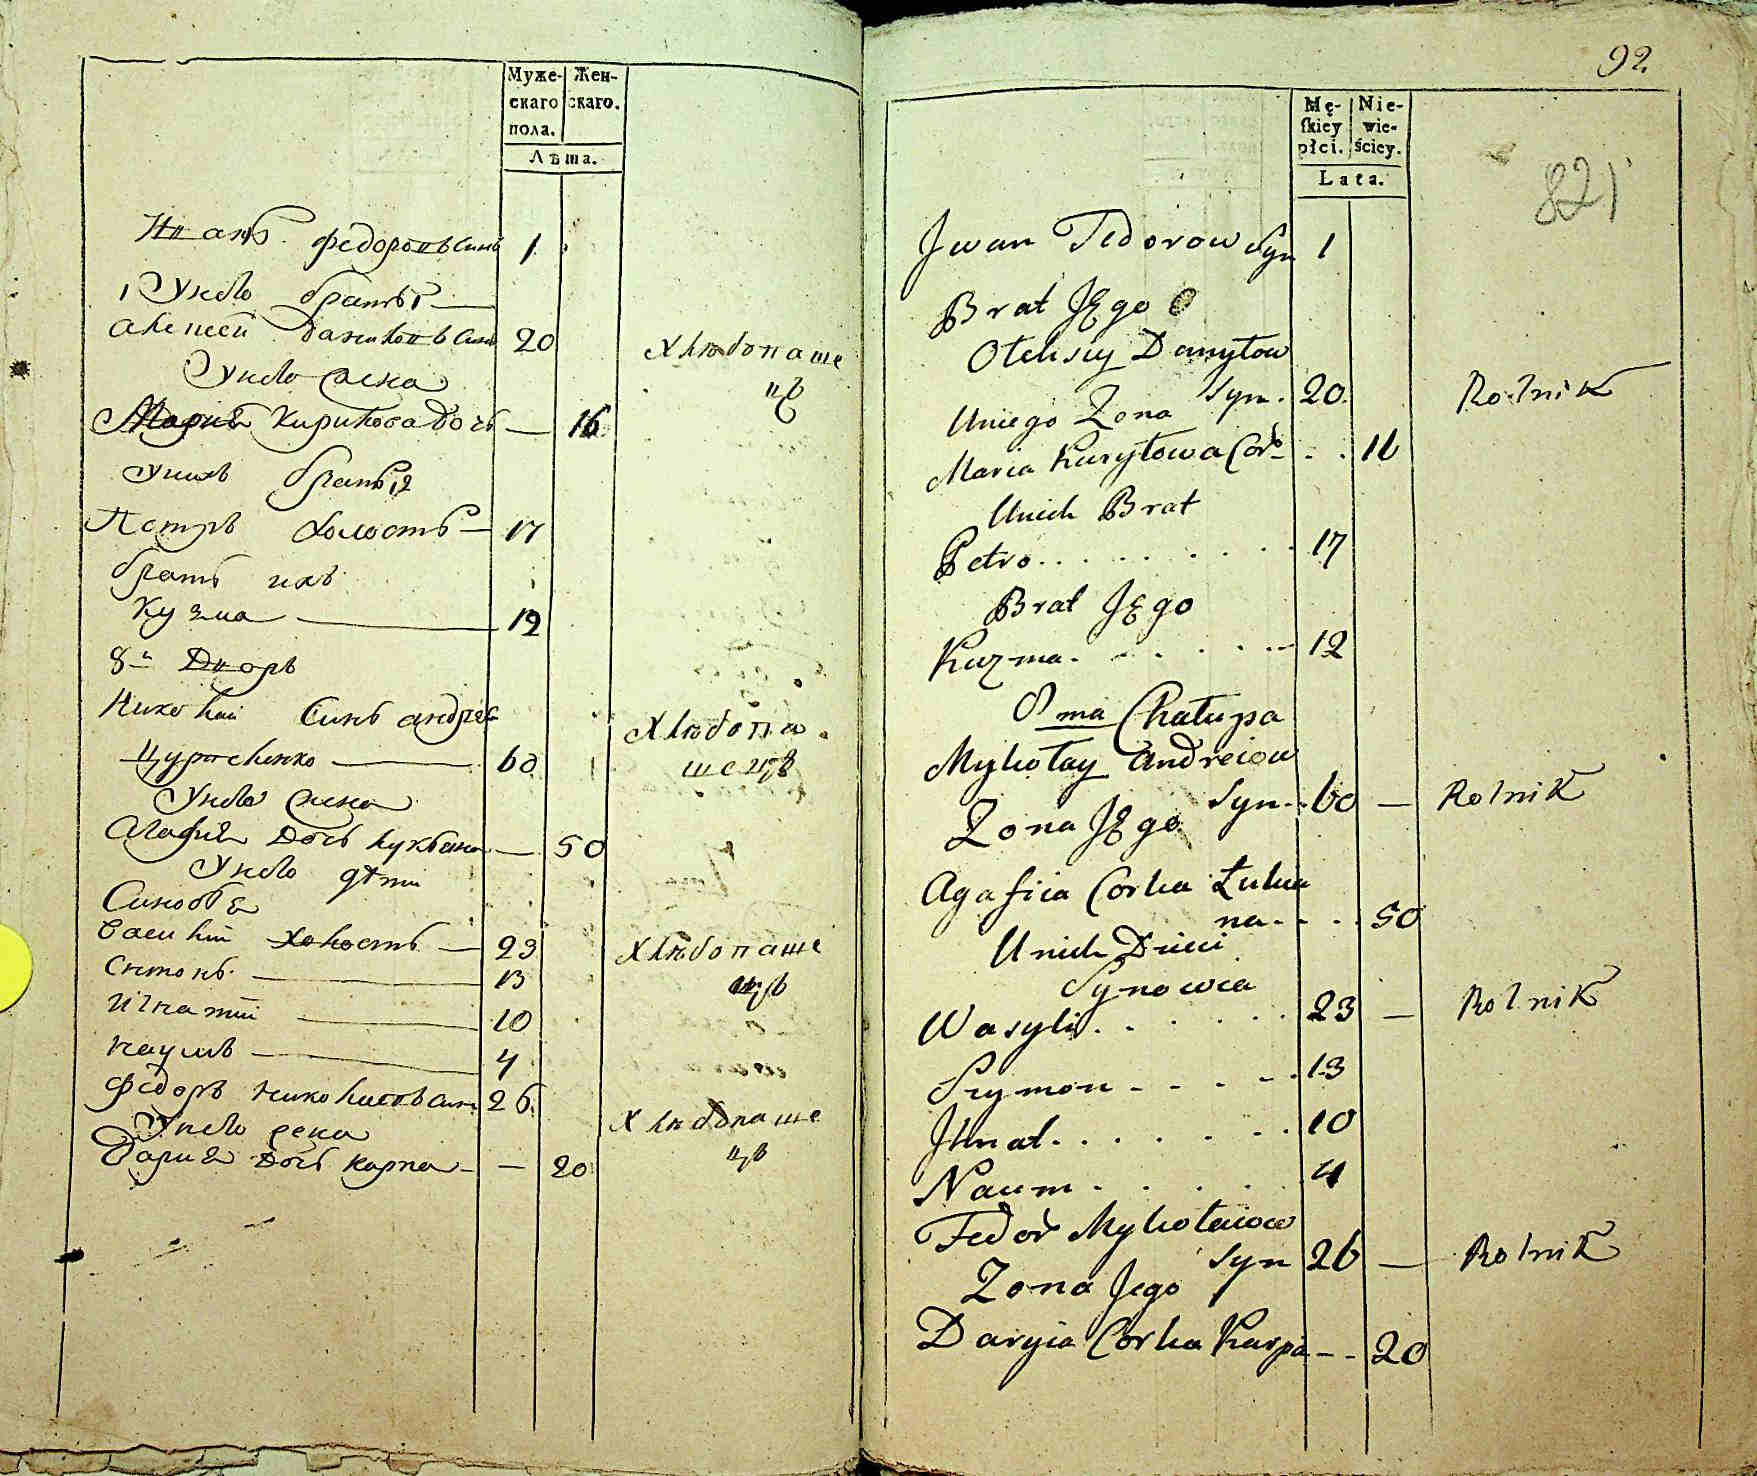 Муже- Жен-
скаго скаго.
пола.
Лѣта.
Иванъ Федоровъ Синъ 1
У нево братъ 1
Алексей Даниловъ Синъ 20 Хлѣбопаше
цъ
У нево жена
Мария Кирилова дочь — 16
У нихъ братъ 2
Петръ холостъ — 17
братъ ихъ
Кузма — 12
8й Дворъ
Николай Синъ андрее
— 60 Хлѣбопа
шецъ
У нево жена
Агафия Дочь лукьяна — 50
У нево дѣти
Синовья
Василий холостъ — 23 Хлѣбопаше
цъ
— 13
Игнатий — 10
Наумъ — 4
Федоръ Николаевъ Синъ 26 Хлѣбопаше
цъ
У нево жена
Дария Дочь Карпа — — 20
92.
821
Mę- Nie-
skiey wie-
płci. ściey.
Lata.
Jwan Fedorow Syn 1
Brat Jego
Oleksiy Danyłow
Syn. 20. Rolnik
Uniego Zona
Maria Kuryłowa Cor. . . 16
Unich Brat
Petro . . . . . . . 17
Brat Jego
Kuzma. - . . . . - 12
8ma Chałupa
Mykołay Andreiow
Syn - - 60 — Rolnik
Zona Jego
Agafiia Corka Łukia
na - - . . 50
Unich Dzieci
Synowia
Wasyli . . . . . . 23 — Rolnik
Szymon - - - - - 13
Jhnat . . . . . . . 10
Naum . . . . . 4
Fedor Mykołaiow
Syn 26 — Rolnik
Zona Jego
Daryia Corka Karpa - - 20